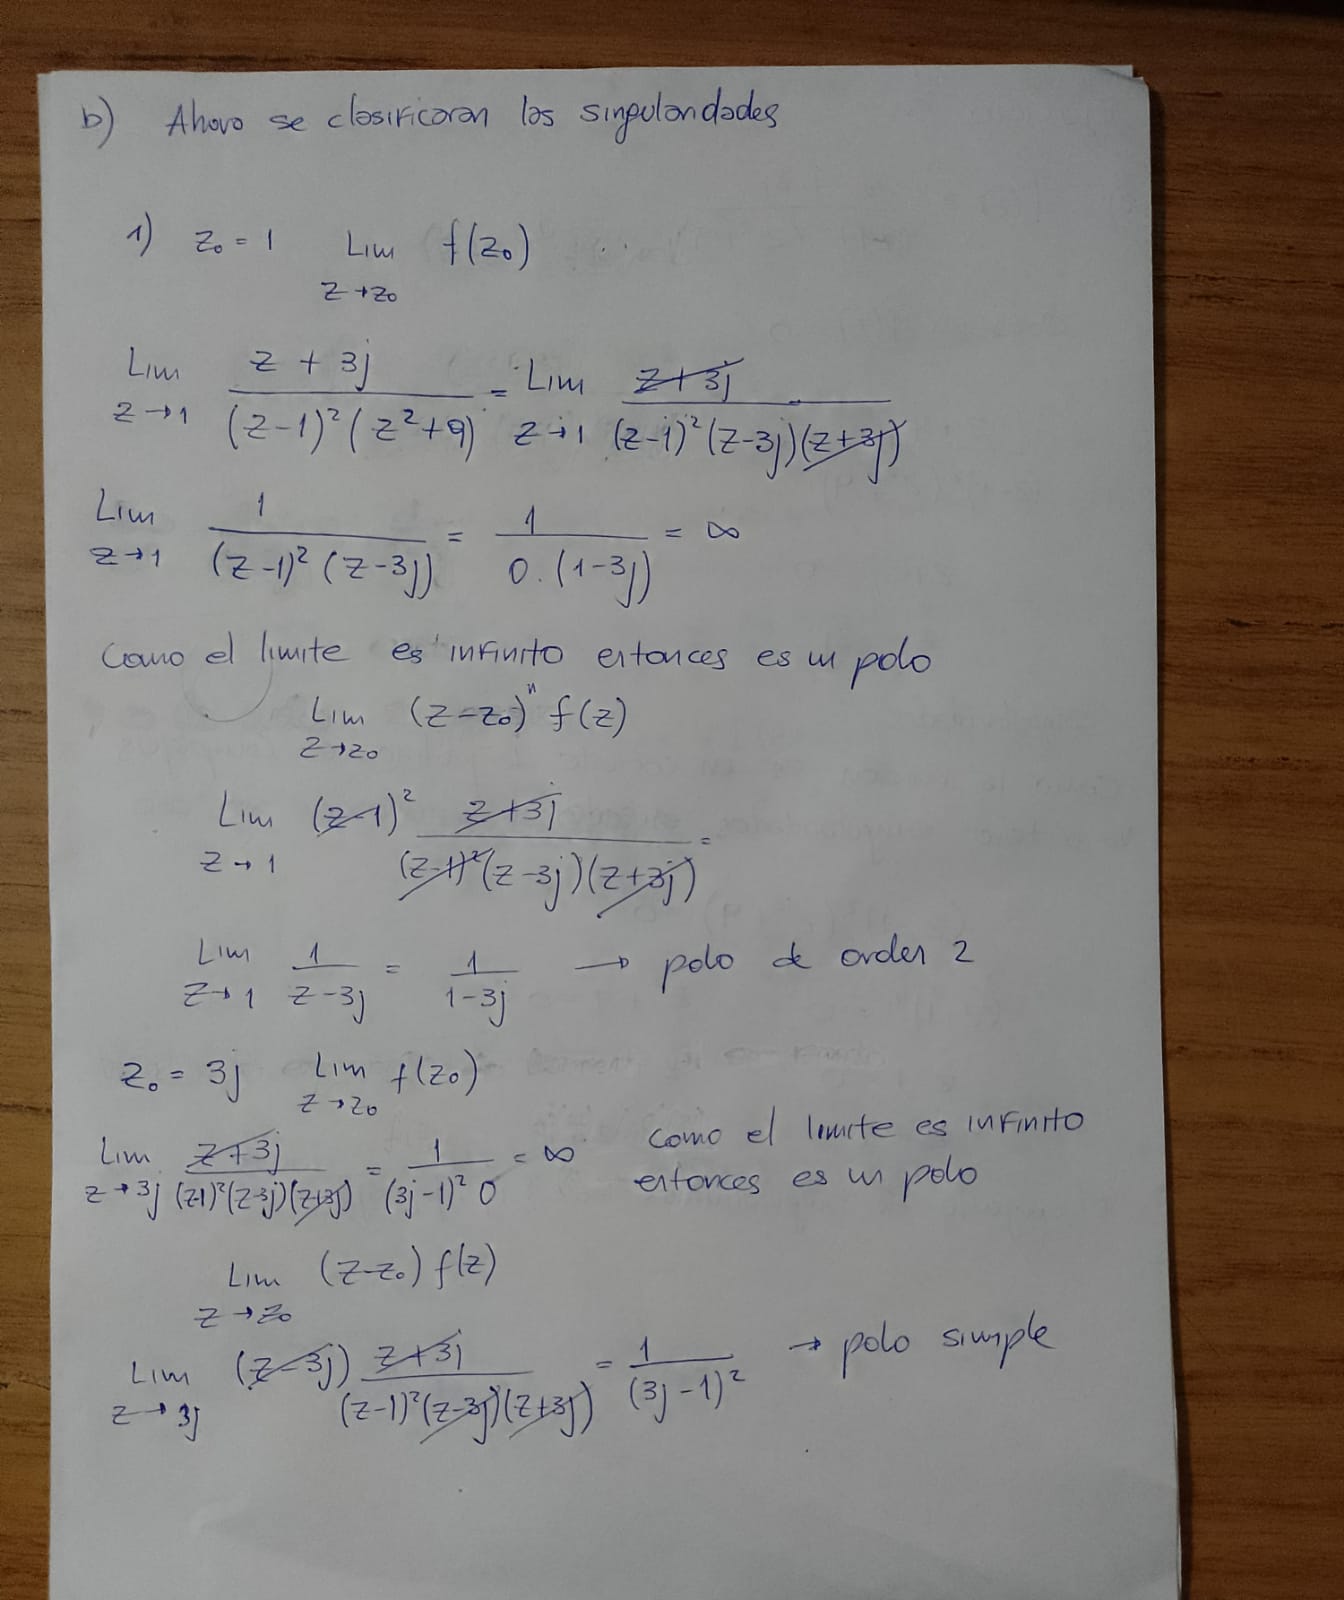 b) Ahora se clasificaran las singularidades
1) z₀ = 1 Lim z→z₀ f(z₀)
Lim z→1 (z + 3j)/((z-1)²(z²+9)) = Lim z→1 (z+3j)/((z-1)²(z-3j)(z+3j))
Lim z→1 1/((z-1)²(z-3j)) = 1/(0.(1-3j)) = ∞
Como el limite es infinito entonces es un polo
Lim z→z₀ (z-z₀)ⁿ f(z)
Lim z→1 (z-1)² (z+3j)/((z-1)²(z-3j)(z+3j)) =
Lim z→1 1/(z-3j) = 1/(1-3j) → polo de orden 2
z₀ = 3j Lim z→z₀ f(z₀)
Lim z→3j (z+3j)/((z-1)²(z-3j)(z+3j)) = 1/((3j-1)² 0) = ∞ como el limite es infinito
entonces es un polo
Lim z→z₀ (z-z₀) f(z)
Lim z→3j (z-3j) (z+3j)/((z-1)²(z-3j)(z+3j)) = 1/(3j-1)² → polo simple